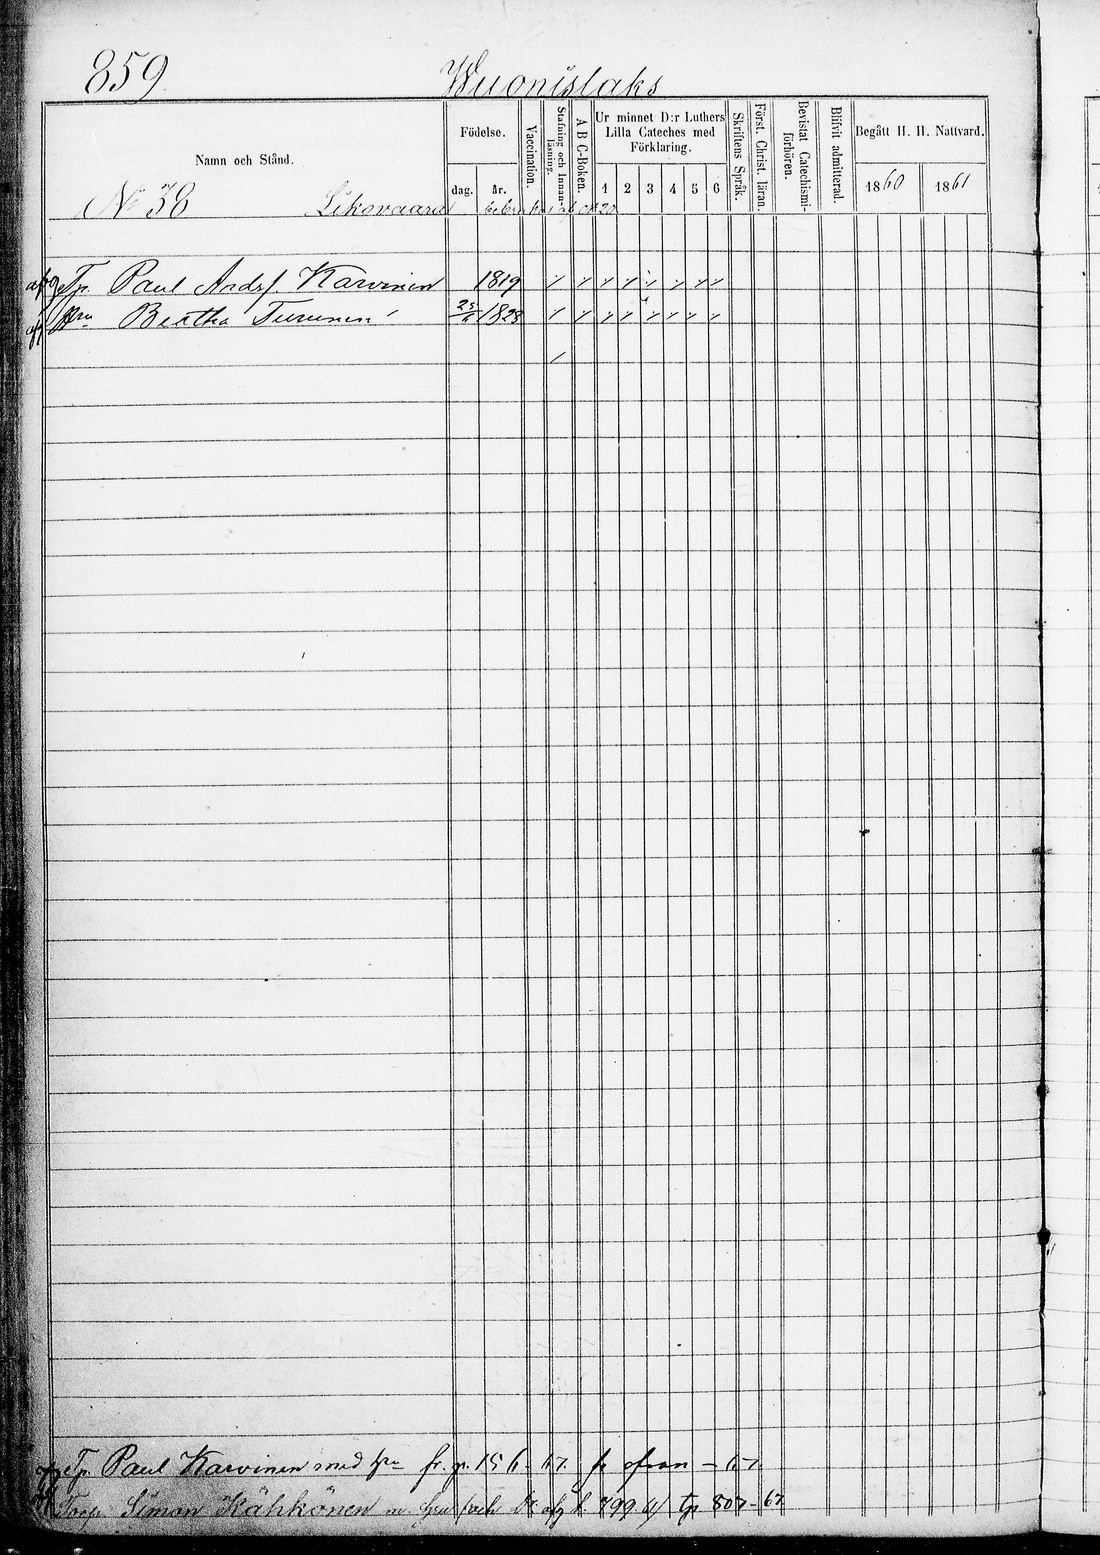 859.
Wuonislaks
Namn och Stånd.
Födelse.
dag.
år.
Vaccination.
Stafning och Innan-läsning.
A B C-Boken.
Ur minnet D:r Luthers
Lilla Cateches med
Förklaring.
1 2 3 4 5 6
Skriftens Språk.
Först. Christ. läran.
Bevistat Catechismi-förhören.
Blifvit admitterad.
Begått H. H. Nattvard.
1860 1861
No 38 Liksovaara
Tp. Paul Andrs Karvinen 1819
Hru Bertha Turunen 1828
Tp. Paul Karvinen med hru fr. p. 156 - 67. - 67.
Torp. Simon Kähkönen m hru och 799 807 - 67